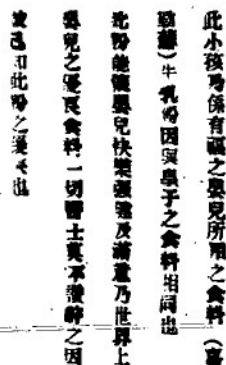 此小孩乃係有福之嬰兒所用之食料（
）牛乳粉因與之食料相同也
此粉能使嬰兒快樂強健及滿意乃世界上
嬰兒之優良食料一切醫士莫不讚之因
彼已知此粉之優也